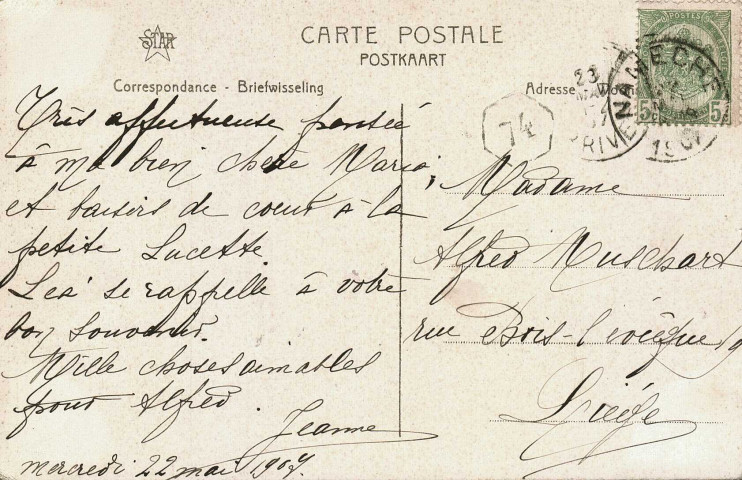 STAR
CARTE POSTALE
POSTKAART
Correspondance - Briefwisseling
Adresse
Très affectueuse pensée
à ma bien chère Maria,
et baisers de coeur à la
petite Lucette.
Léa se rappelle à votre
bon souvenir.
Mille choses aimables
pour Alfred.
Jeanne
mercredi 22 mai 1907.
74
NAMECHE
1907
23
MAI
POSTES
5 5
Madame
Alfred Muschart
rue Bois-l'évêque
Liége